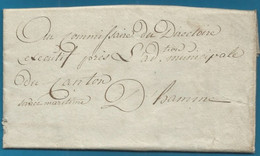 Au Commissaire du Directoire
executif près L'adtion municipale
du Canton
D'hamme